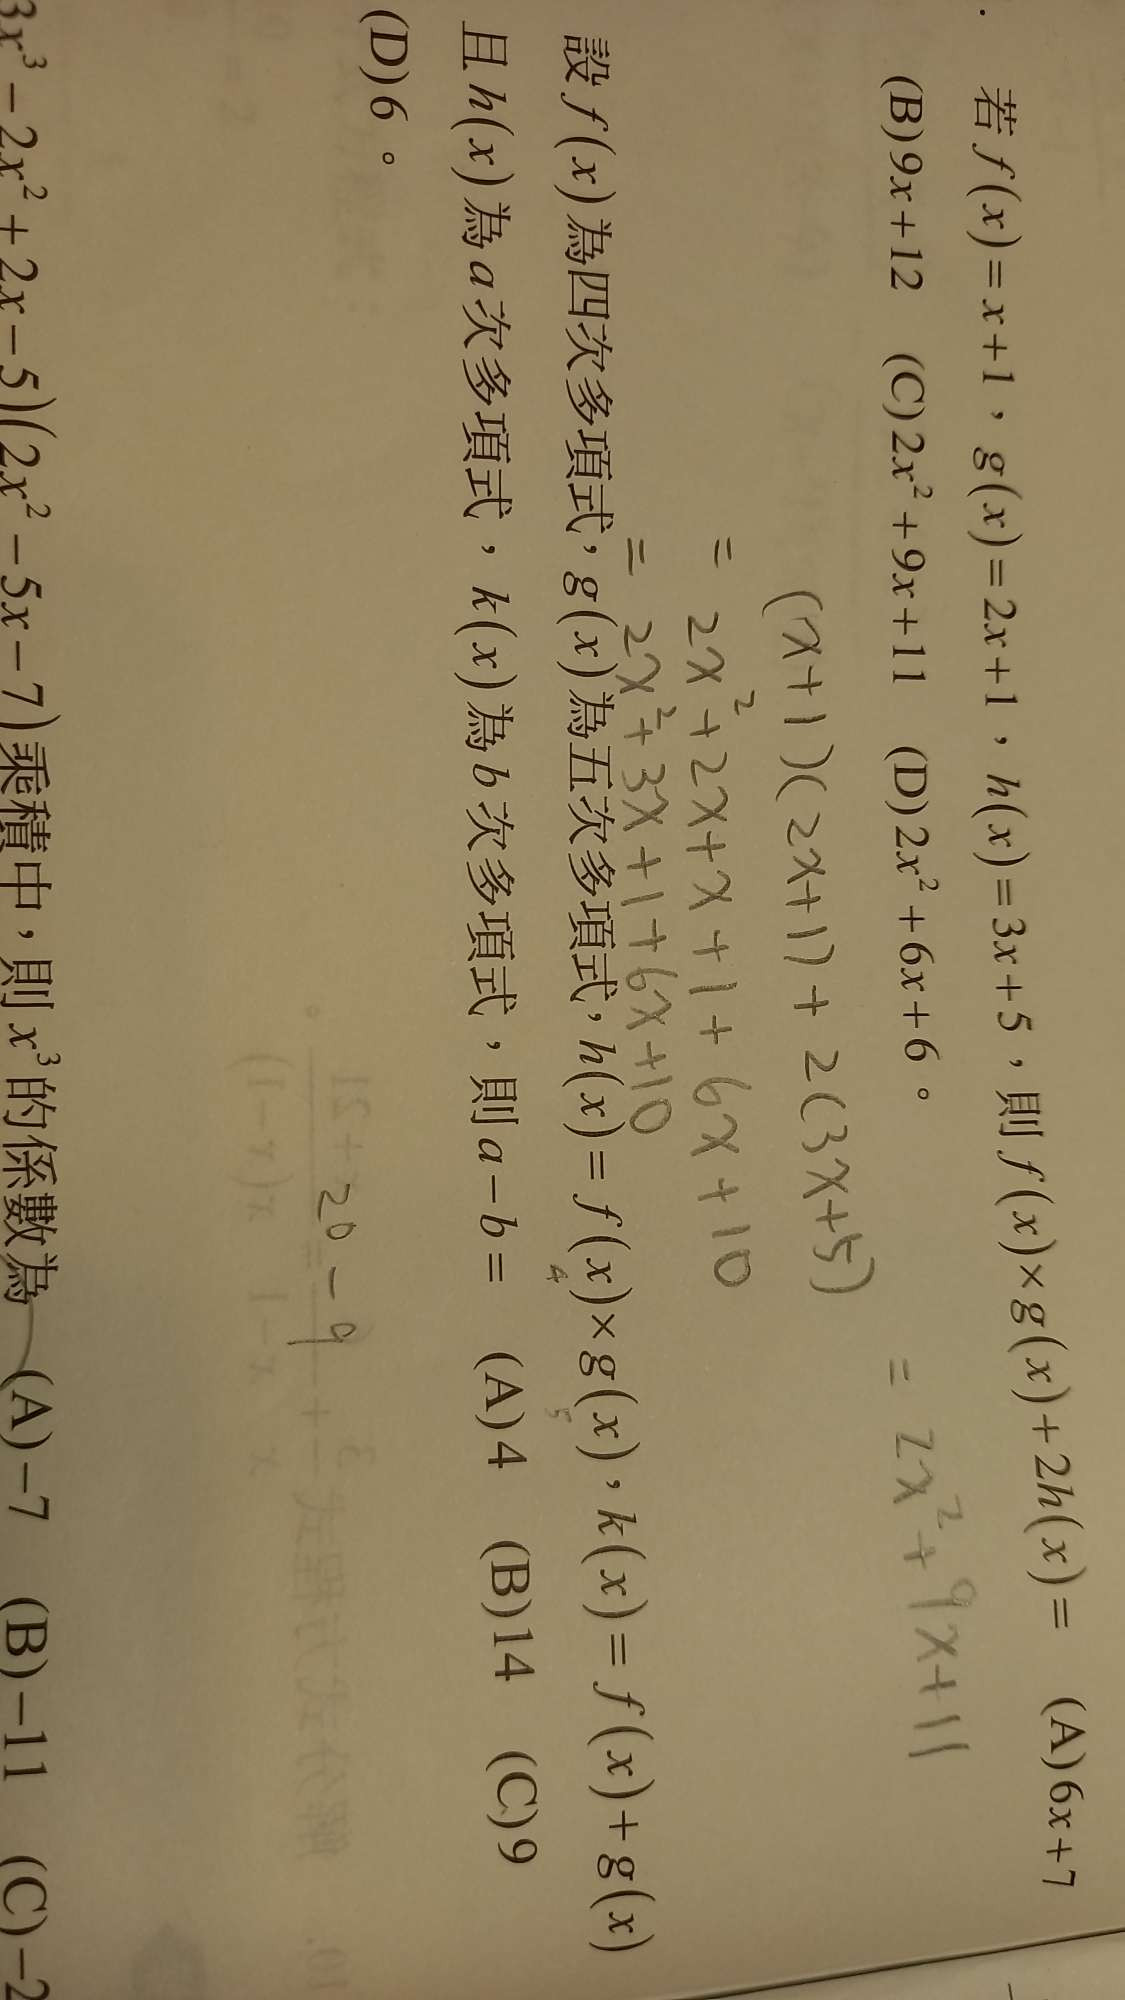 若 f(x)=x+1，g(x)=2x+1，h(x)=3x+5，則 f(x)×g(x)+2h(x)= (A)6x+7
(B)9x+12 (C)2x²+9x+11 (D)2x²+6x+6。
= 2x²+9x+11
(x+1)(2x+1)+2(3x+5)
= 2x²+2x+x+1+6x+10
= 2x²+3x+1+6x+10
設 f(x)為四次多項式，g(x)為五次多項式，h(x)=f(x)×g(x)，k(x)=f(x)+g(x)
4 5
且 h(x)為 a 次多項式，k(x)為 b 次多項式，則 a−b= (A)4 (B)14 (C)9
(D)6。
20−9
3x³−2x²+2x−5)(2x²−5x−7)乘積中，則 x³的係數為 (A)−7 (B)−11 (C)−2